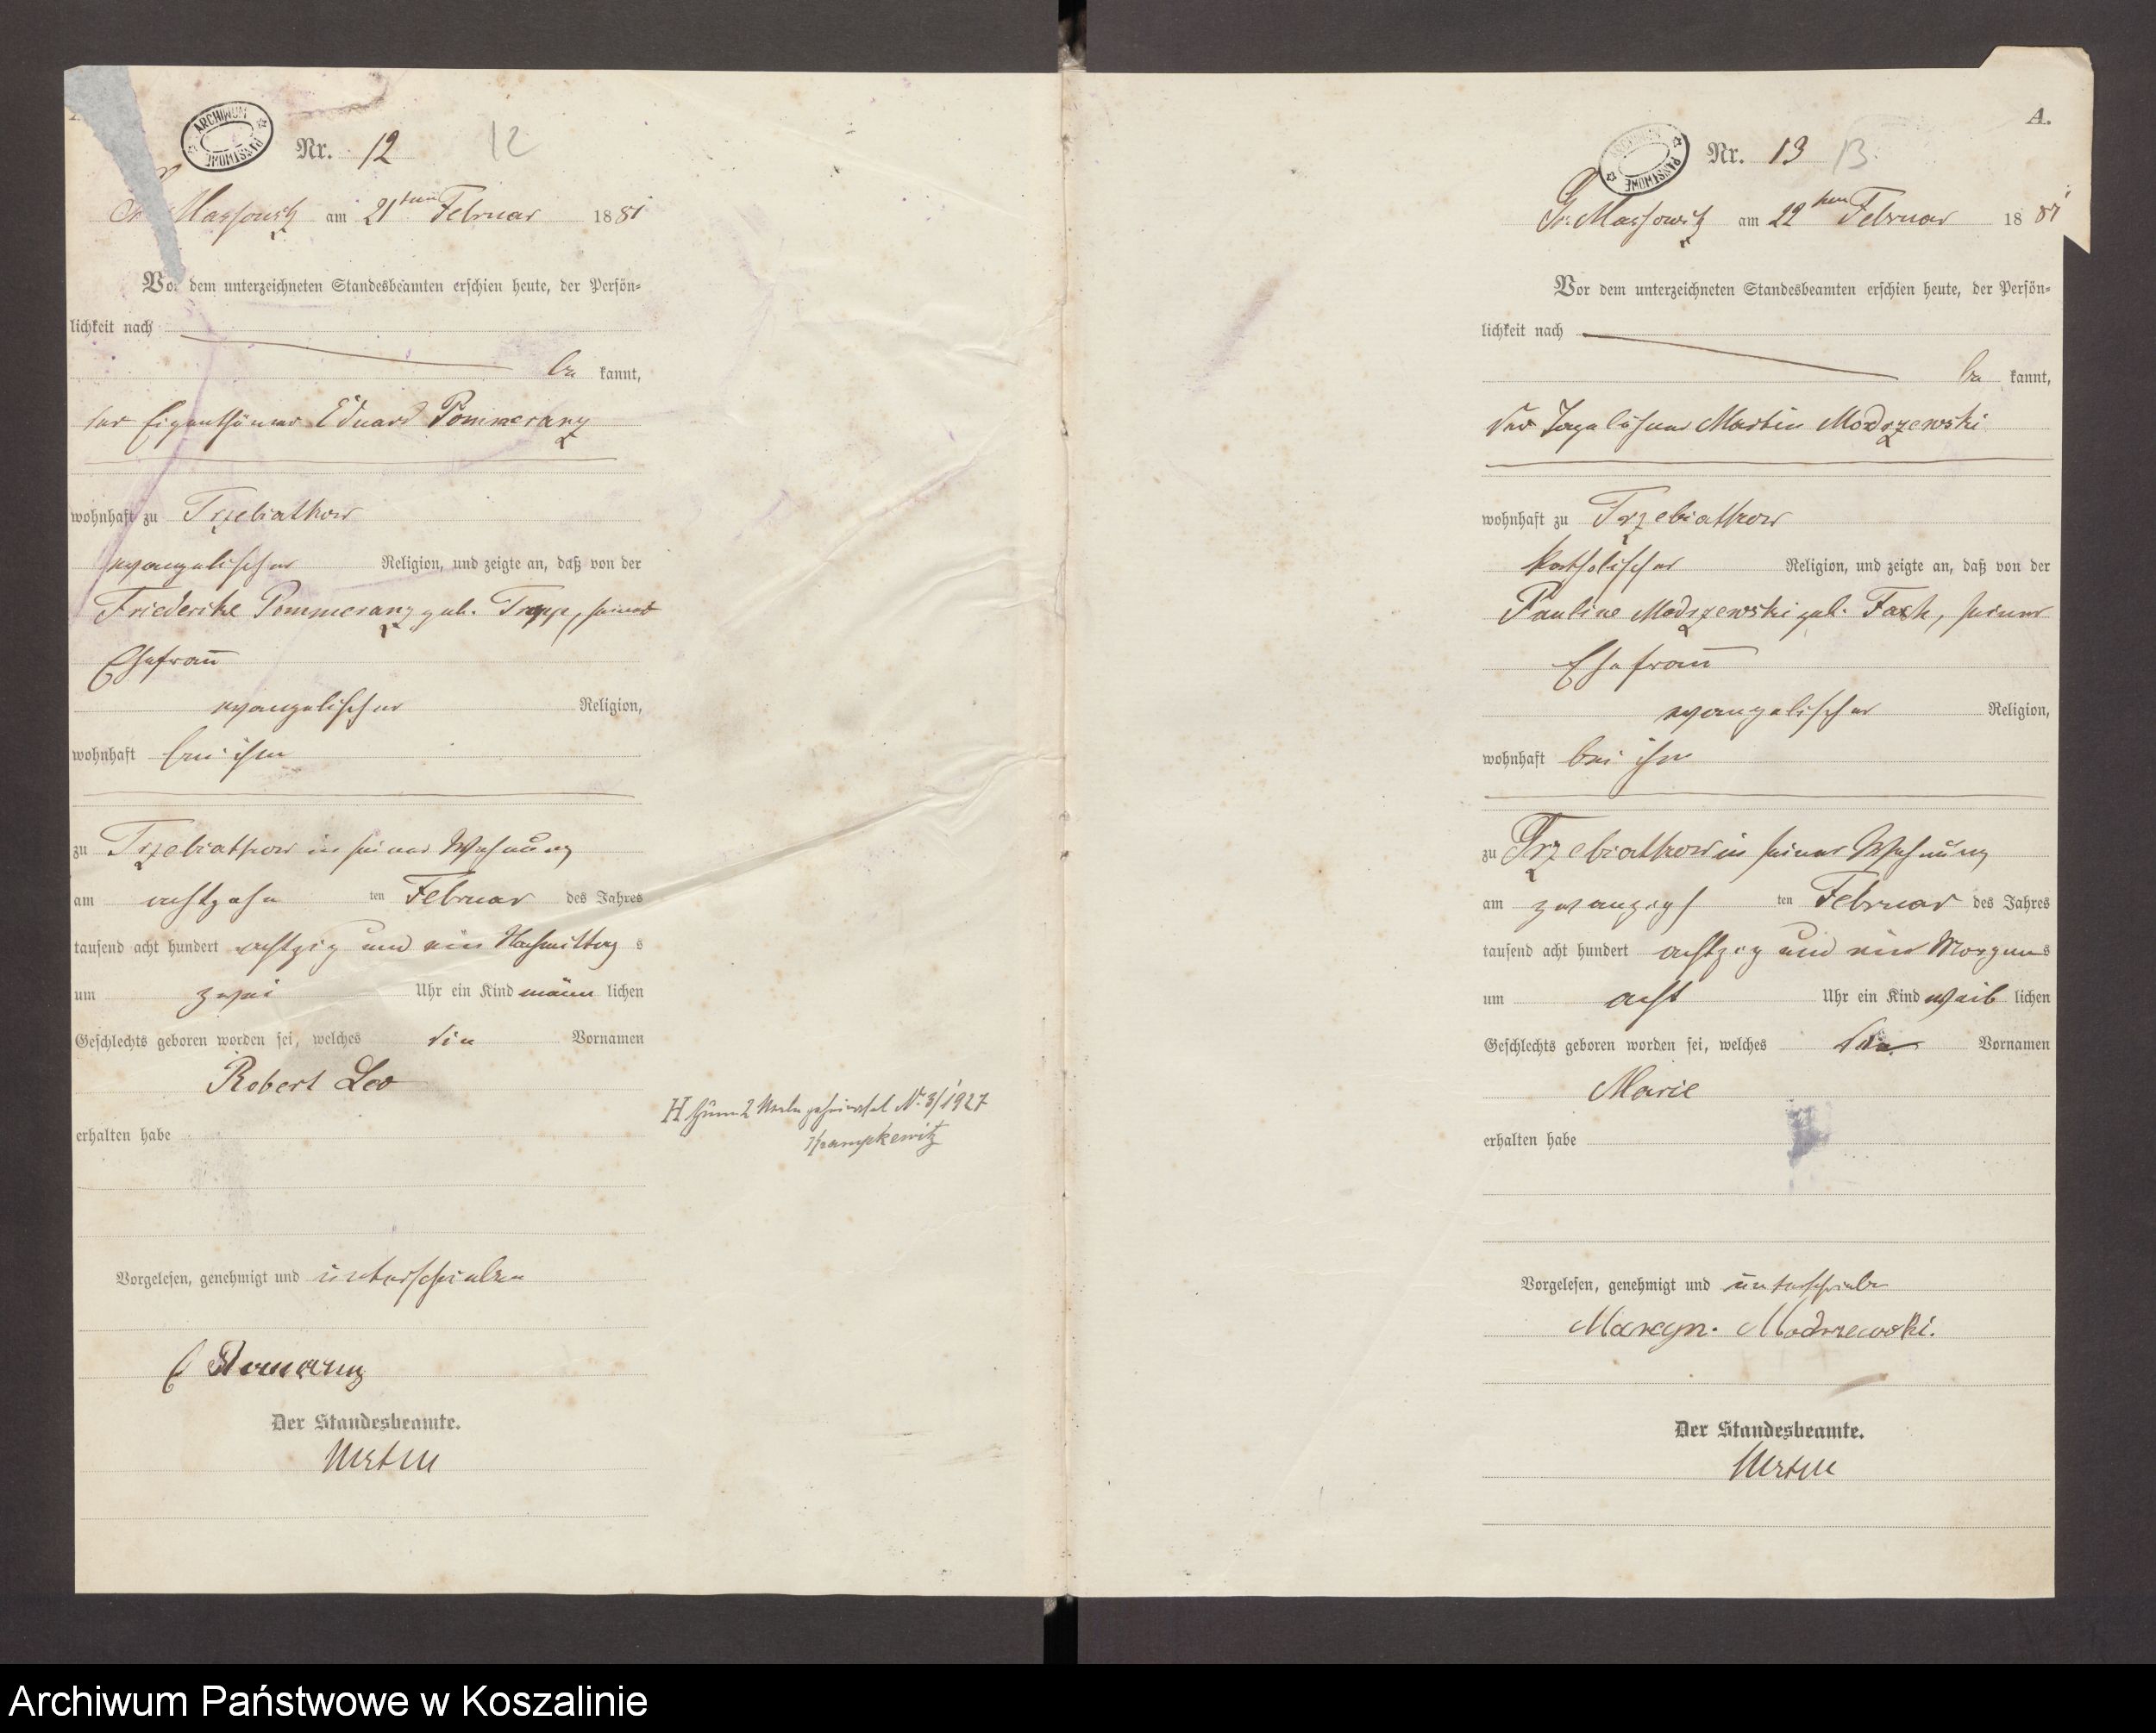 ARCHIWUM PAŃSTWOWE
Nr. 12 12
Massowitz am 21ten Februar 1881
Vor dem unterzeichneten Standesbeamten erschien heute, der Persön-
lichkeit nach
be kannt,
der Eigenthümer Eduard Pommeranz
wohnhaft zu Trzebiatkow
evangelischer Religion, und zeigte an, daß von der
Friederike Pommeranz geb. Trapp, seiner
Ehefrau
evangelischer Religion,
wohnhaft bei ihm
zu Trzebiatkow in seiner Wohnung
am achtzehn ten Februar des Jahres
tausend acht hundert achtzig und ein Nachmittag s
um zwei Uhr ein Kind männ lichen
Geschlechts geboren worden sei, welches die Vornamen
Robert Leo
erhalten habe
Vorgelesen, genehmigt und unterschrieben
Der Standesbeamte.
H zum 2 Male geheiratet Nr. 3/1927
Krampkewitz
A.
ARCHIWUM PAŃSTWOWE
Nr. 13 13
Gr. Massowitz am 22ten Februar 1881
Vor dem unterzeichneten Standesbeamten erschien heute, der Persön-
lichkeit nach
be kannt,
der Tagelöhner Martin Modrzewski
wohnhaft zu Trzebiatkow
katholischer Religion, und zeigte an, daß von der
Pauline Modrzewski geb. seiner
Ehefrau
evangelischer Religion,
wohnhaft bei ihm
zu Trzebiatkow in seiner Wohnung
am zwanzigs ten Februar des Jahres
tausend acht hundert achtzig und ein Morgens
um acht Uhr ein Kind weib lichen
Geschlechts geboren worden sei, welches den Vornamen
Marie
erhalten habe
Vorgelesen, genehmigt und unterschrieben
Marcyn. Modrzewski.
Der Standesbeamte.
Archiwum Państwowe w Koszalinie